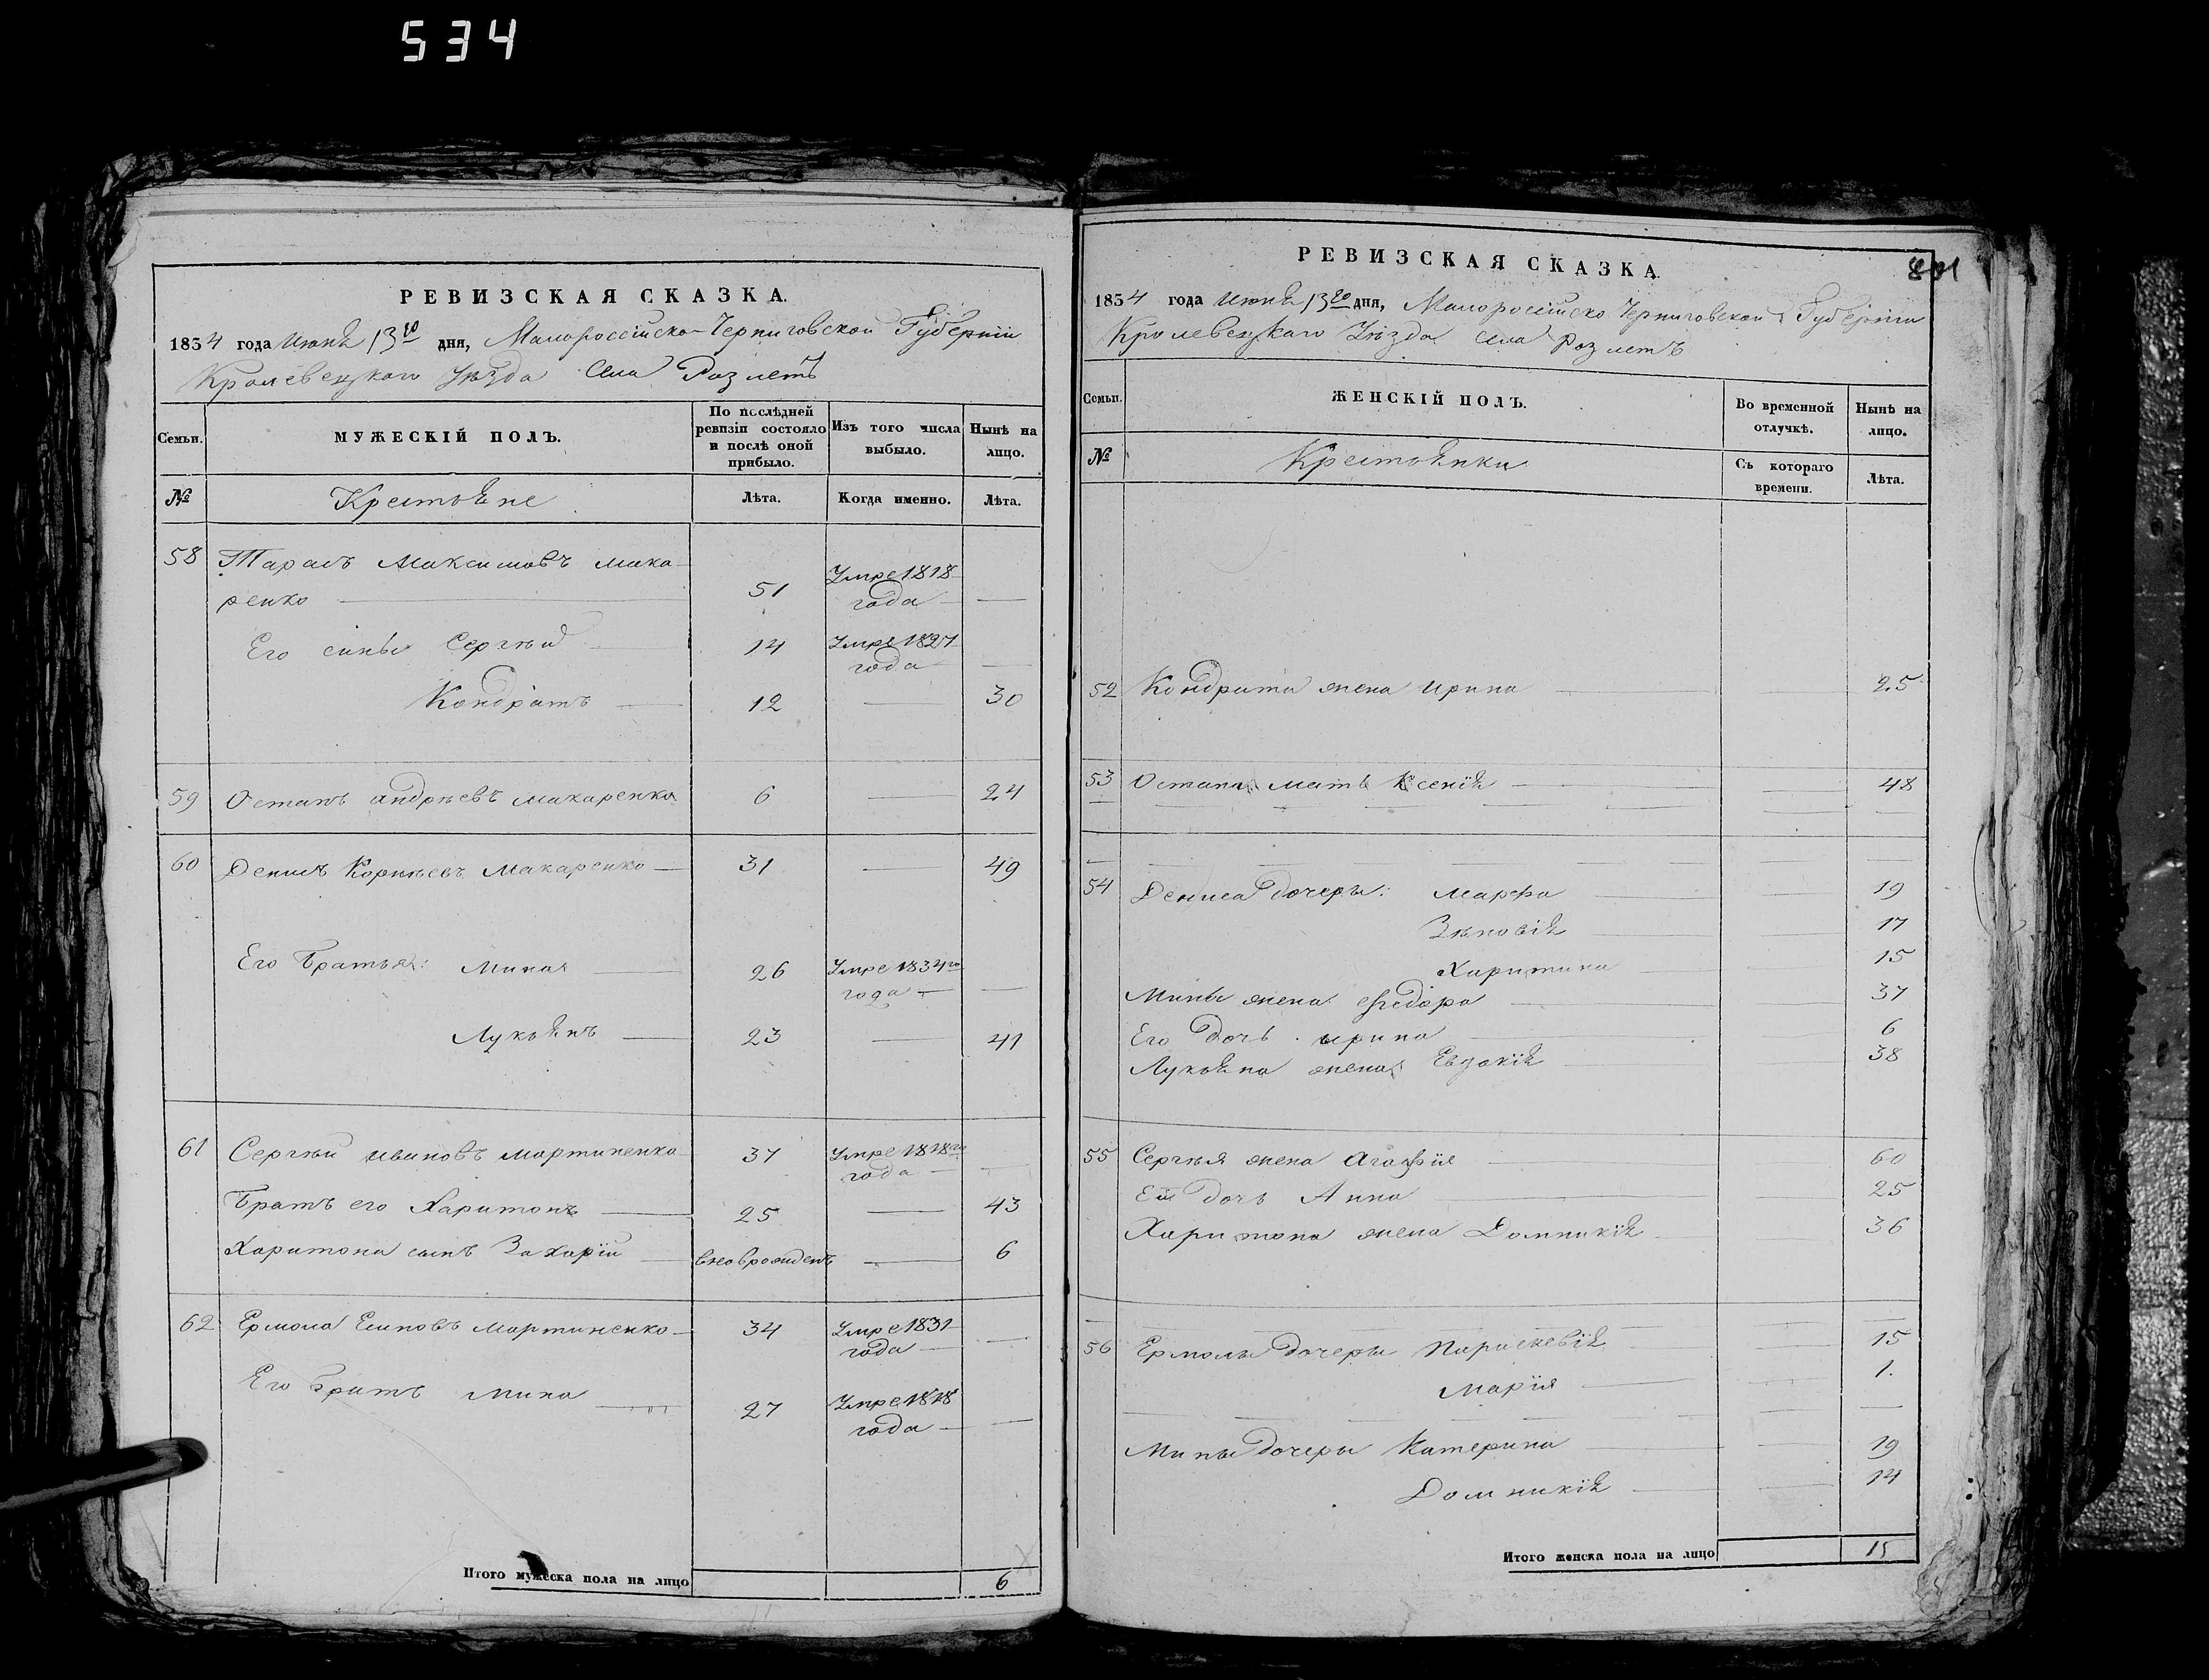 534
РЕВИЗСКАЯ СКАЗКА.
1834 года Июня 13го дня, Малороссійско-Черниговской Губерніи
Кролевецкаго Уѣзда Села Розлетъ
Семьи. МУЖЕСКІЙ ПОЛЪ. По послѣдней ревизіи состояло и послѣ оной прибыло. Изъ того числа выбыло. Нынѣ на лицо.
№ Крестьяне Лѣта. Когда именно. Лѣта.
58 Тарасъ Максимовъ Мака-
ренко — 51 Умре 1818 года — —
Его сыны Сергѣй — 14 Умре 1827 года —
Кондратъ — 12 — 30
59 Остапъ Андрѣевъ Макаренко 6 — 24
60 Денисъ Корнѣевъ Макаренко — 31 — 49
Его Братья: Мина — 26 Умре 1834го года — —
Лукьянъ — 23 — 41
61 Сергѣй Ивановъ Мартиненко 37 Умре 1818го года — —
Братъ его Харитонъ — 25 — 43
Харитона сынъ Захарій — вновврожденъ — 6
62 Ермола Емповъ Мартиненко — 34 Умре 1831 года — —
Его братъ Мина — 27 Умре 1818 года — —
Итого мужеска пола на лицо 6
РЕВИЗСКАЯ СКАЗКА.
1834 года Июня 13го дня, Малоросійско Черниговской Губерніи
Кролевецкаго Уѣзда Села Розлетъ
Семьи. ЖЕНСКІЙ ПОЛЪ. Во временной отлучкѣ. Нынѣ на лицо.
№ Крестьянки Съ котораго времени. Лѣта.
52 Кондрата жена Ирина — — 25
53 Остапа мать Ксенія — — 48
54 Дениса дочеры: Марфа — — 19
Зѣновія — — 17
Харитина — — 15
Мины жена Федора — — 37
Его дочь Ирина — — 6
Лукьяна жена Евдокія — — 38
55 Сергѣя жена Агафія — 60
Ея дочь Анна — 25
Харитона жена Домникія — 36
56 Ермолы дочеры Параскевія — — 15
Марія — — 1.
Мины дочеры Катерина — 19
Домникія — — 14
Итого женска пола на лицо 15